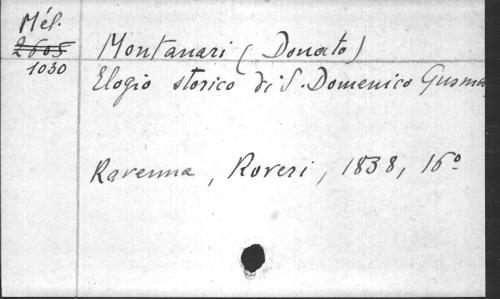 Mél.
2605
1030
Montanari (Donato)
Elogio storico di S. Domenico Gusma
Ravenna, Roveri, 1838, 16°